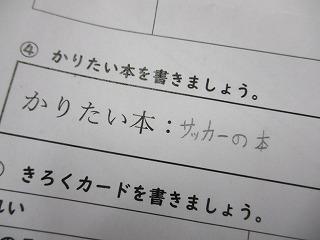 ④ かりたい本を書きましょう。
かりたい本：サッカーの本
きろくカードを書きましょう。